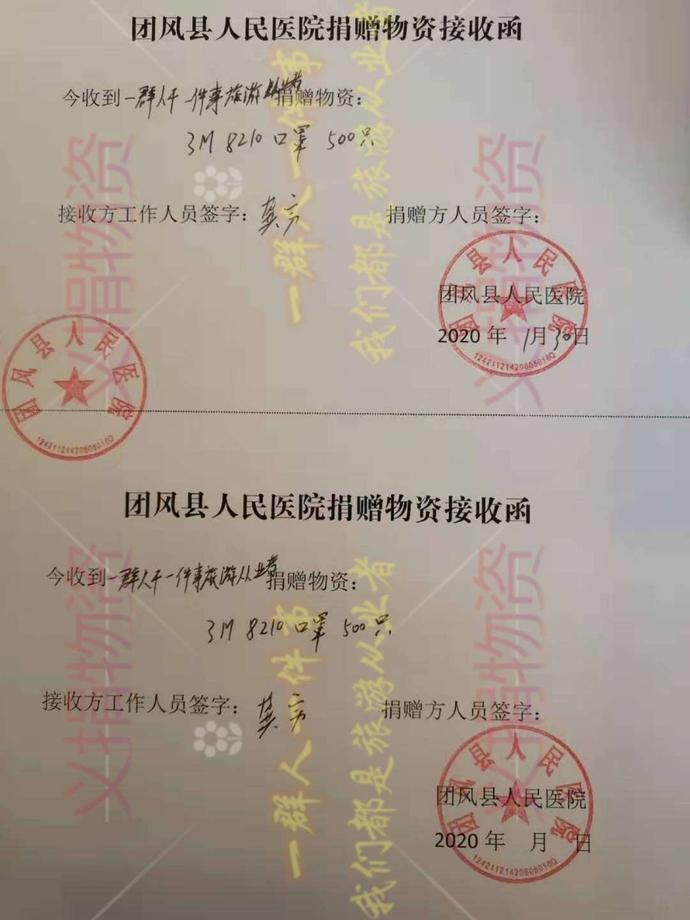 团风县人民医院捐赠物资接收函
今收到一群人干一件事旅游从业者捐赠物资：
3M 8210 口罩 500只
接收方工作人员签字：
捐赠方人员签字：
团风县人民医院
团风县人民医院
2020 年 1月30日
团风县人民医院
团风县人民医院捐赠物资接收函
今收到一群人干一件事旅游从业者捐赠物资：
3M 8210 口罩 500只
接收方工作人员签字：
捐赠方人员签字：
团风县人民医院
团风县人民医院
2020 年 月 日
义捐物资
一群人一件事
我们都是旅游从业者
义捐物资
义捐物资
一群人一件事
我们都是旅游从业者
义捐物资